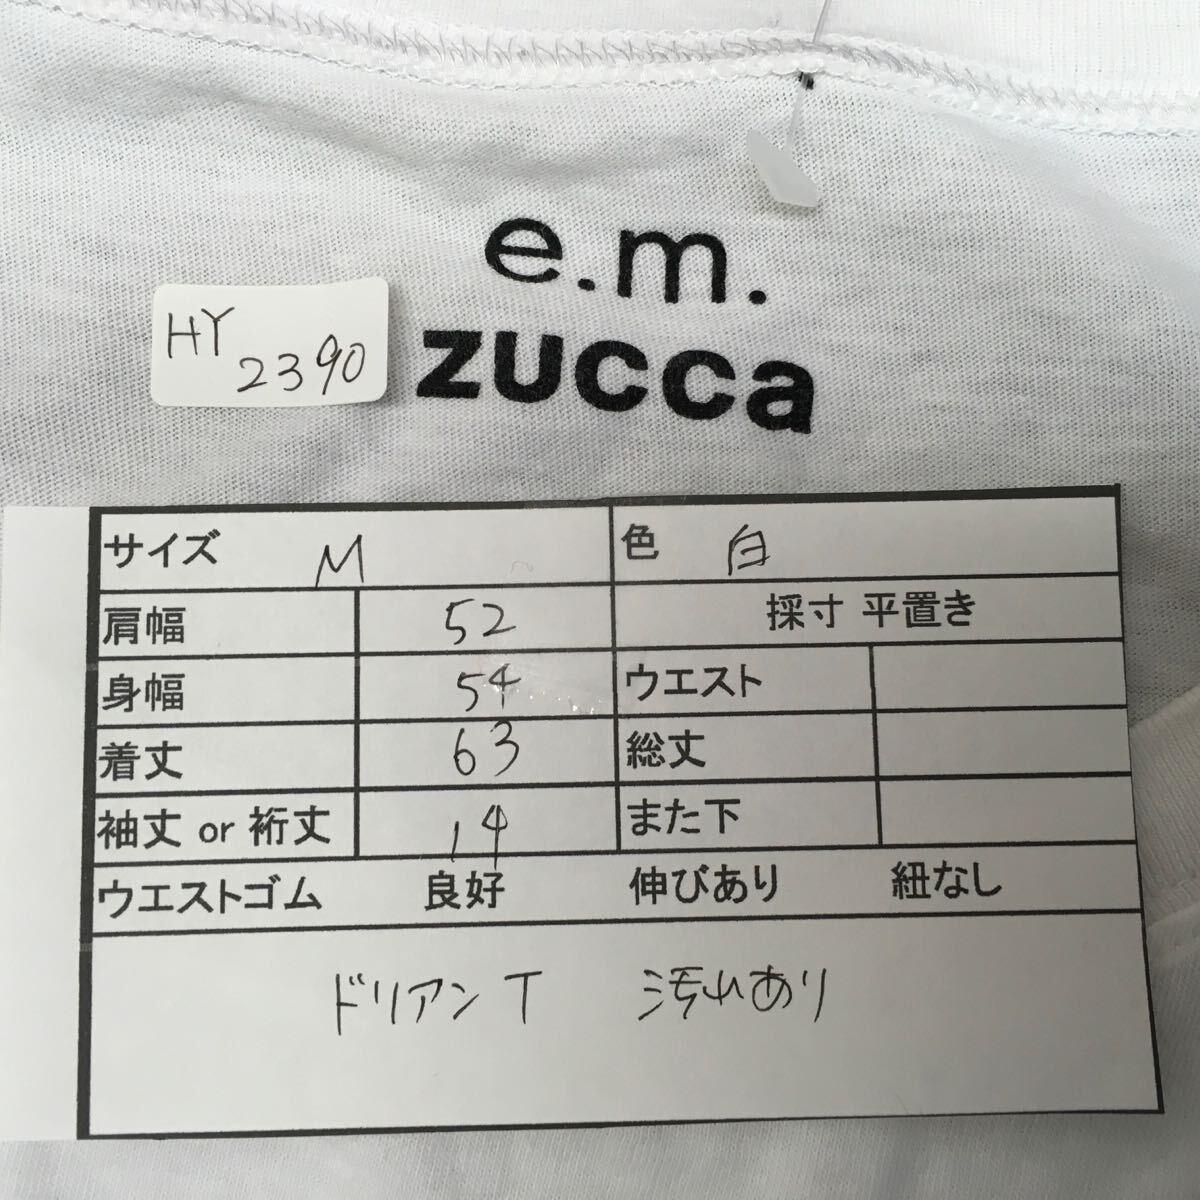 e.m.
zucca
HY
2390
サイズ M 色 白
肩幅 52 採寸 平置き
身幅 54 ウエスト
着丈 63 総丈
袖丈 or 裄丈 14 また下
ウエストゴム 良好 伸びあり 紐なし
ドリアンT 汚れあり